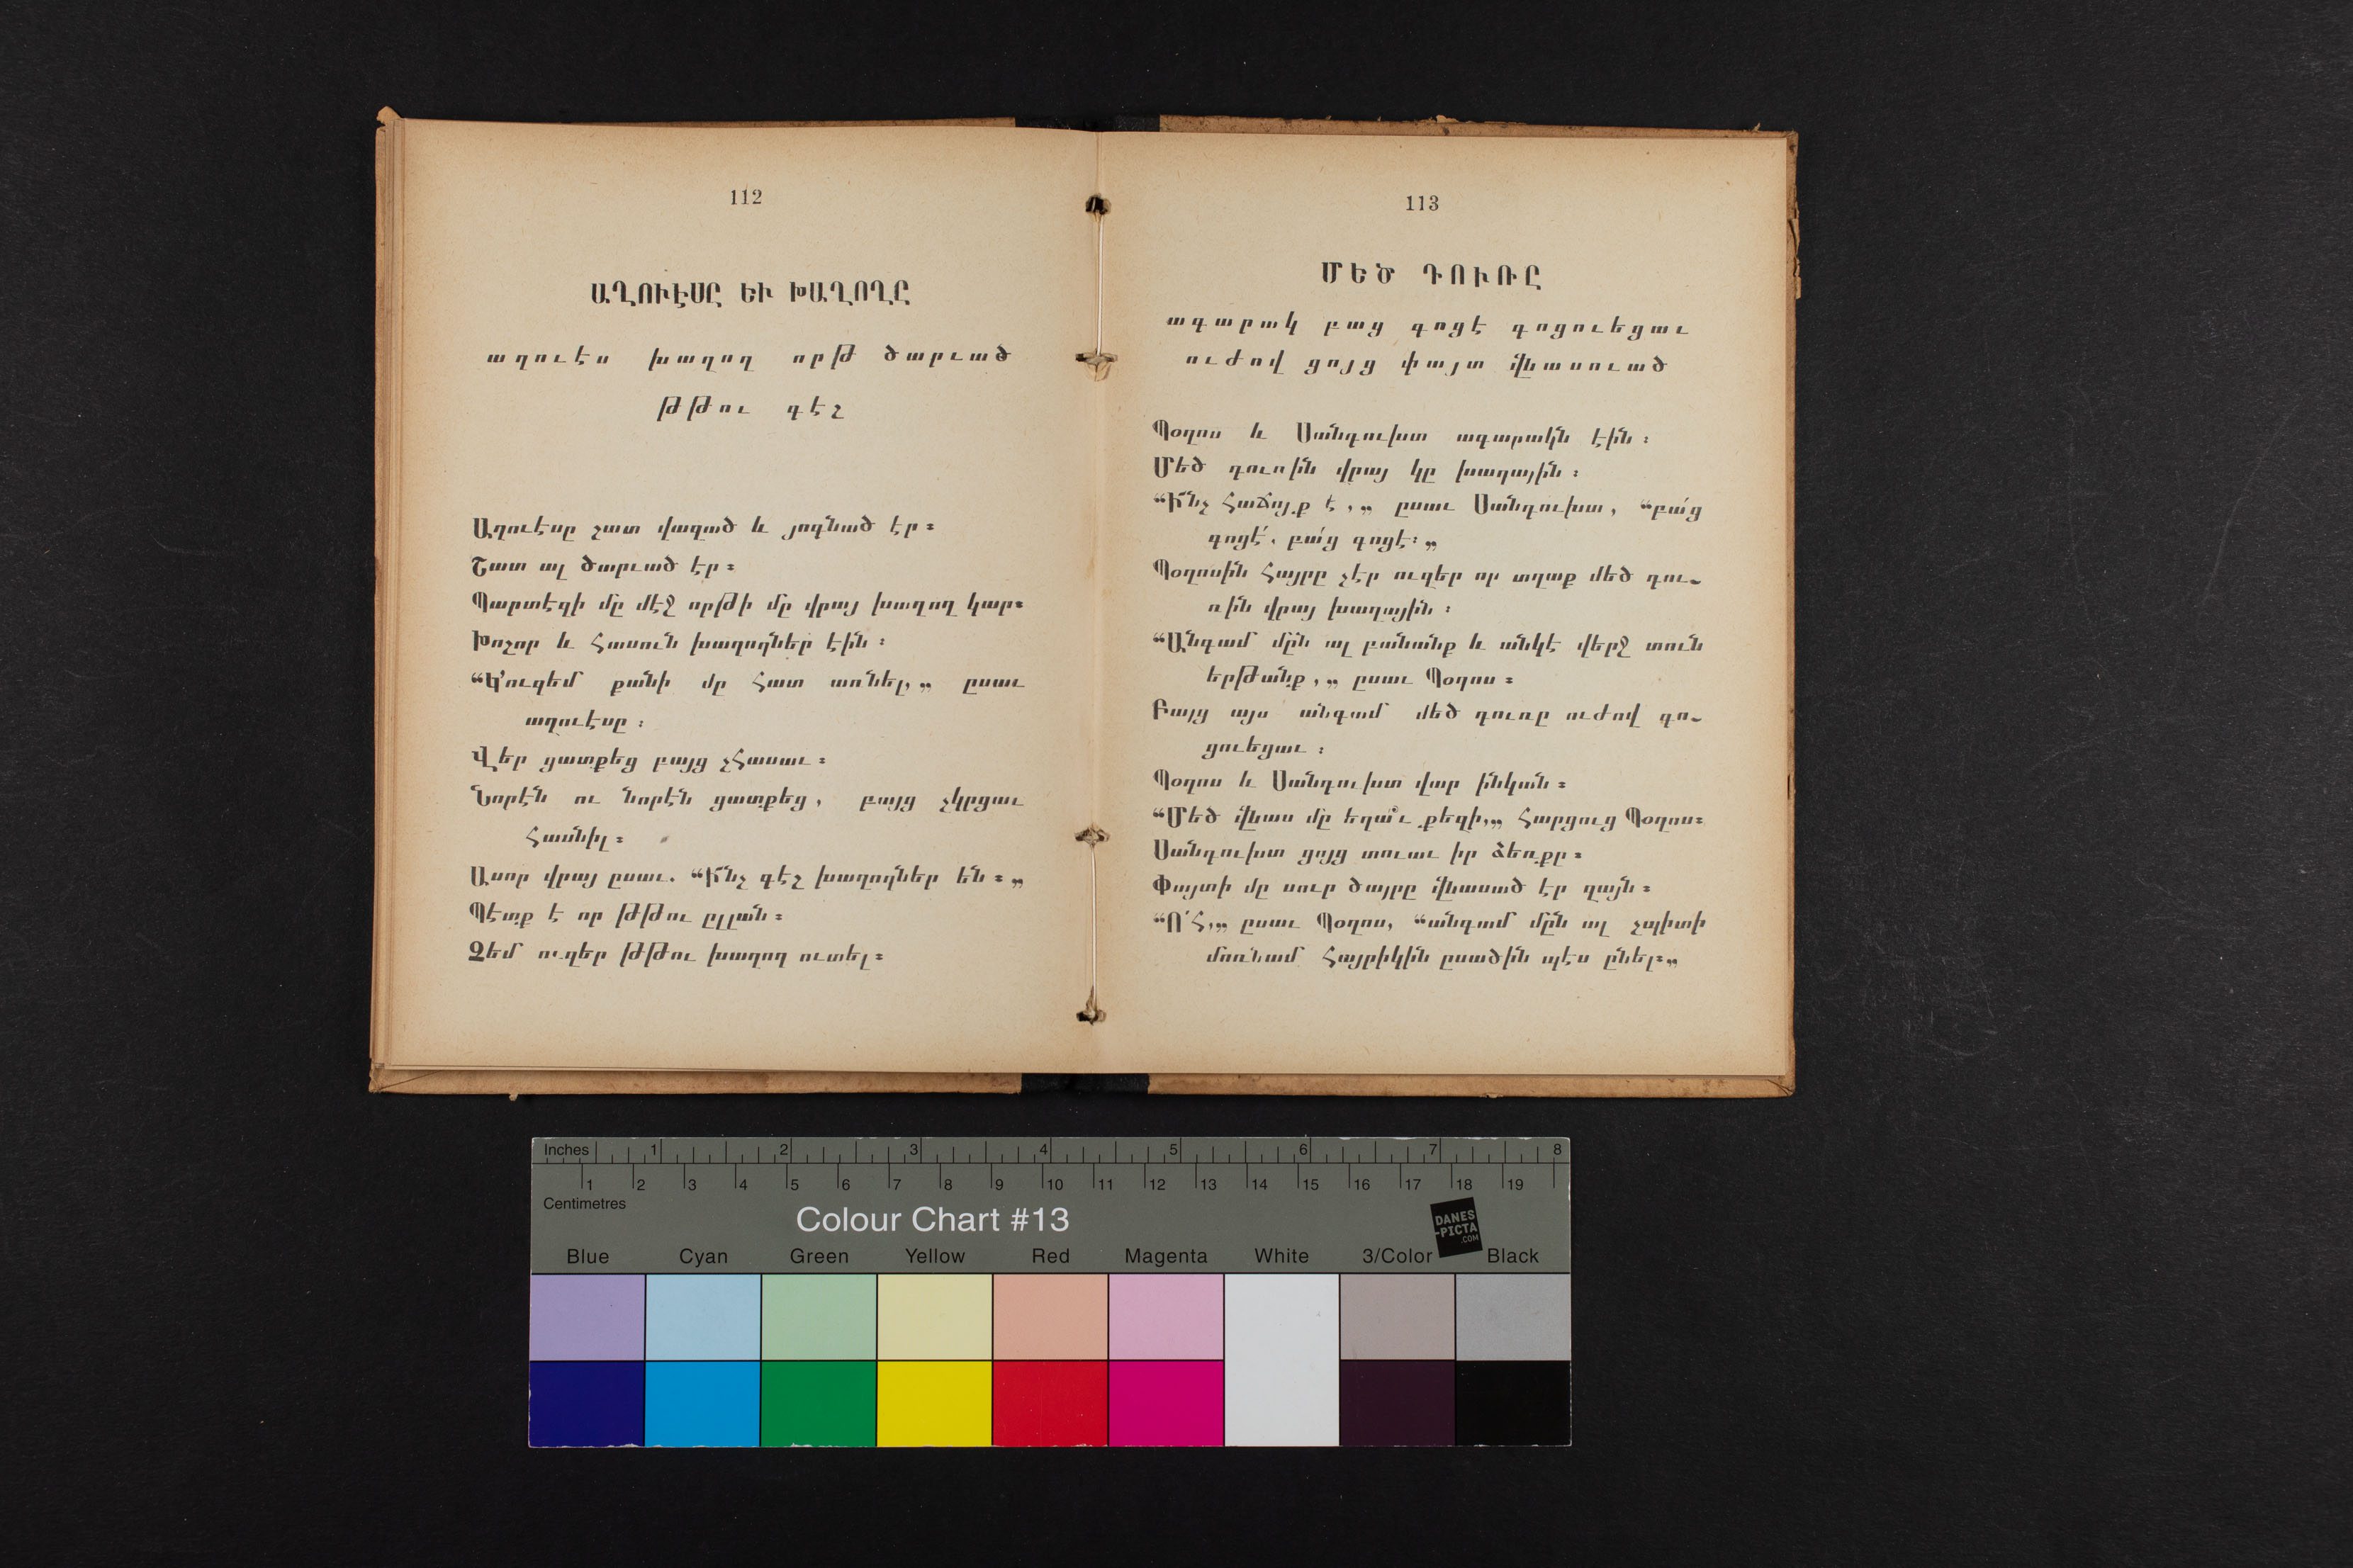 112
ԱՂՈՒԷՍԸ ԵՒ ԽԱՂՈՂԸ
աղուէս խաղող որթ ծարւած
թթու գէշ
Աղուէսը շատ վազած և յոգնած էր։
Շատ ալ ծարւած էր։
Պարտէզի մը մէջ որթի մը վրայ խաղող կար։
Խոշոր և հասուն խաղողներ էին։
“Կ՚ուզեմ քանի մը հատ առնել,„ ըսաւ
աղուէսը։
Վեր ցատքեց բայց չհասաւ։
Նորէն ու նորէն ցատքեց, բայց չկրցաւ
հասնիլ։
Ասոր վրայ ըսաւ. “Ի՜նչ գէշ խաղողներ են։„
Պէտք է որ թթու ըլլան։
Չեմ ուզեր թթու խաղող ուտել։
113
ՄԵԾ ԴՈՒՌԸ
ագարակ բաց գոցէ գոցուեցաւ
ուժով ցոյց փայտ վնասուած
Պօղոս և Սանդուխտ ագարակն էին։
Մեծ դուռին վրայ կը խաղային։
“Ի՜նչ հաճոյք է,„ ըսաւ Սանդուխտ, “բա՛ց
գոցէ՛, բա՛ց գոցէ։„
Պօղոսին հայրը չէր ուզեր որ տղաք մեծ դու-
ռին վրայ խաղային։
“Անգամ մըն ալ բանանք և անկէ վերջ տուն
երթանք,„ ըսաւ Պօղոս։
Բայց այս անգամ մեծ դուռը ուժով գո-
ցուեցաւ։
Պօղոս և Սանդուխտ վար ինկան։
“Մեծ վնաս մը եղա՞ւ քեզի,„ հարցուց Պօղոս։
Սանդուխտ ցոյց տուաւ իր ձեռքը։
Փայտի մը սուր ծայրը վնասած էր զայն։
“Ո՜հ,„ ըսաւ Պօղոս, “անգամ մըն ալ չպիտի
մոռնամ հայրիկին ըսածին պէս ընել։„
Inches 1 2 3 4 5 6 7 8
1 2 3 4 5 6 7 8 9 10 11 12 13 14 15 16 17 18 19
Centimetres
Colour Chart #13
DANES
-PICTA
.COM
Blue Cyan Green Yellow Red Magenta White 3/Color Black